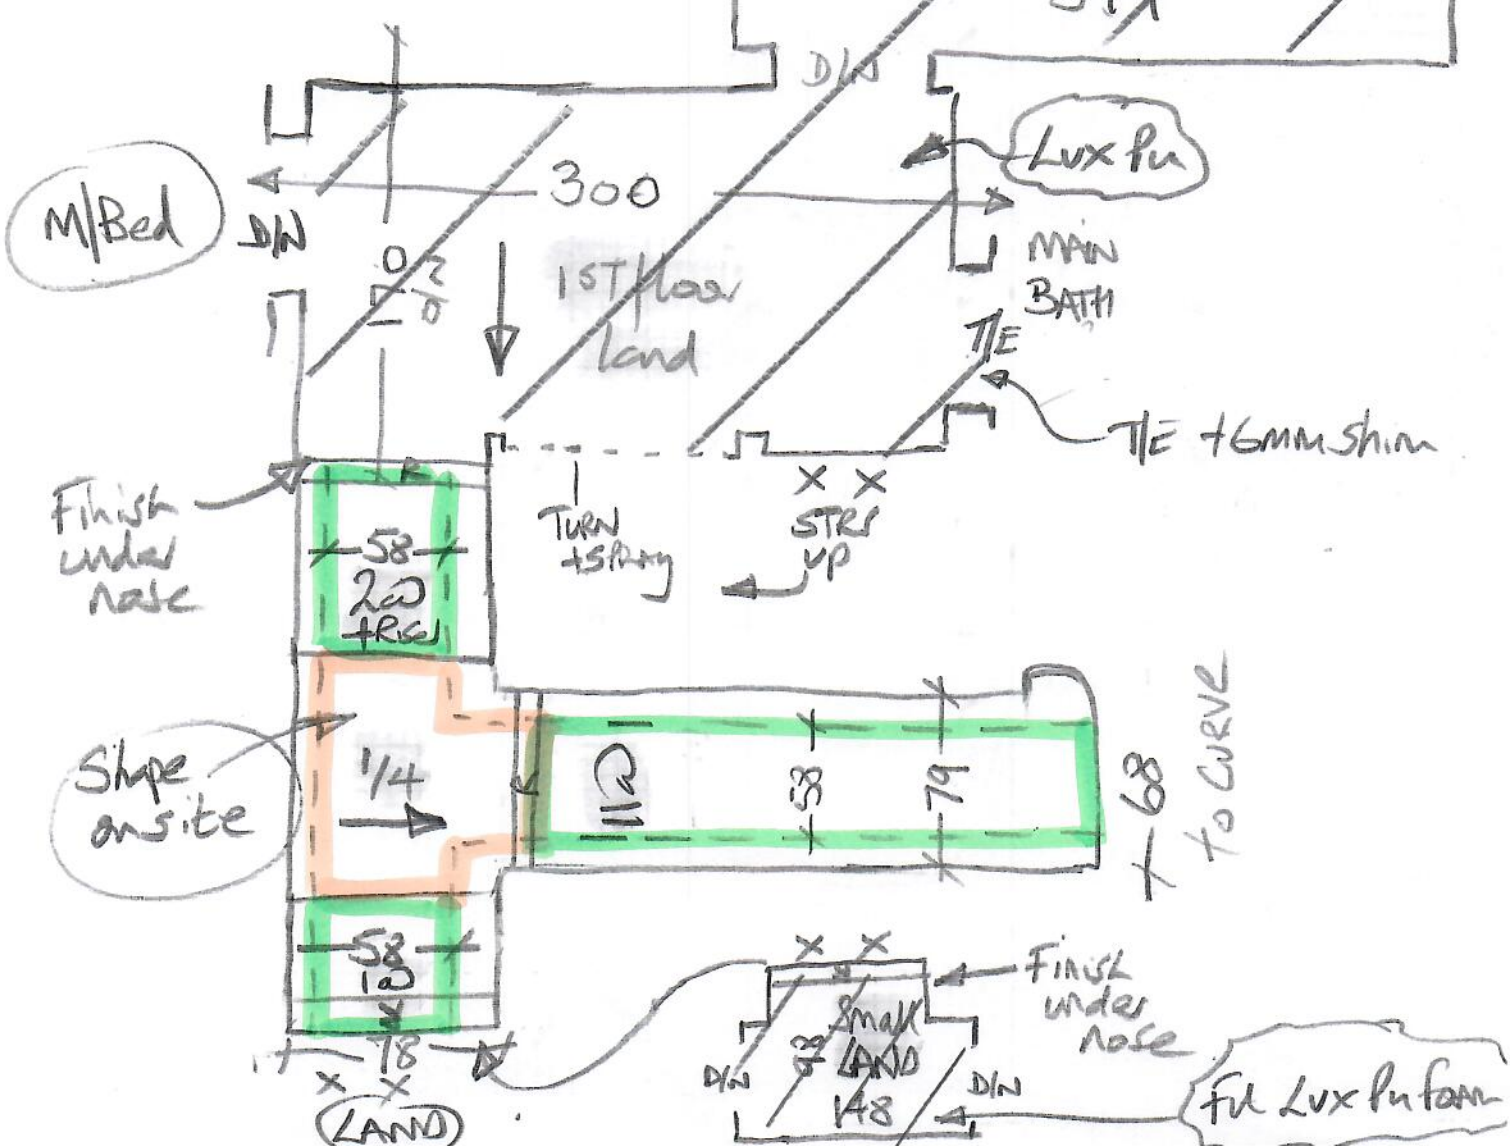 D/N
Lux Pu
M/Bed
D/N
300
MAIN
BATH
1ST floor
land
T/E
T/E +6mm shim
Finish
under
nose
TURN
+SPRAY
X X
STRS
UP
58
2@
+Riser
Shape
onsite
1/4
11@
58
79
68
TO CURVE
58
1@
78
X X
LAND
X X
Finish
under
nose
Small
LAND
148
D/N
D/N
Fit Lux Pu foam